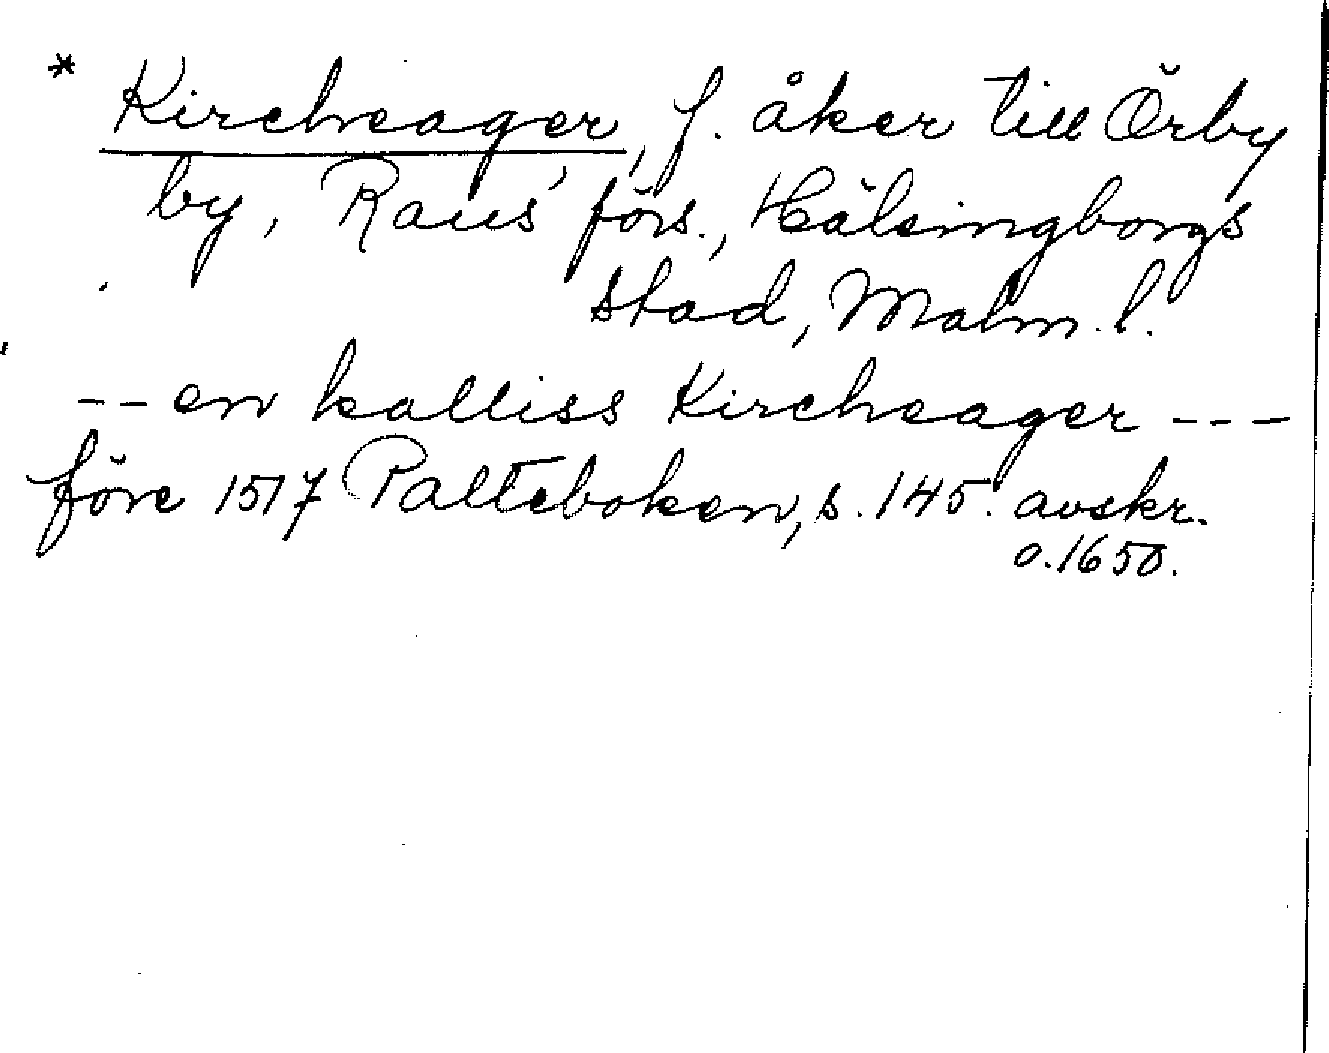 * Kircheager, f. åker till Örby
by, Raus' förs., Hälsingborgs
stad, Malm. l.
-- en kalliss Kircheager ---
före 1517 Palteboken, s. 145. avskr.
o. 1650.